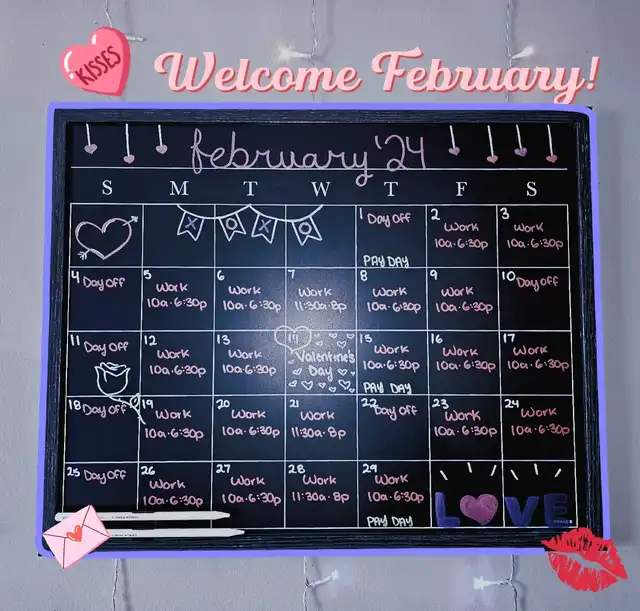 KISSES
Welcome February!
february '24
S M T W T F S
X O X O
1 Day Off
PAY DAY
2 Work
10a-6:30p
3 Work
10a-6:30p
4 Day Off
5 Work
10a-6:30p
6 Work
10a-6:30p
7 Work
11:30a-8p
8 Work
10a-6:30p
9 Work
10a-6:30p
10 Day Off
11 Day Off
12 Work
10a-6:30p
13 Work
10a-6:30p
14
Valentine's
Day
15 Work
10a-6:30p
PAY DAY
16 Work
10a-6:30p
17 Work
10a-6:30p
18 Day Off
19 Work
10a-6:30p
20 Work
10a-6:30p
21 Work
11:30a-8p
22 Day Off
23 Work
10a-6:30p
24 Work
10a-6:30p
25 Day Off
26 Work
10a-6:30p
27 Work
10a-6:30p
28 Work
11:30a-8p
29 Work
10a-6:30p
PAY DAY
LOVE